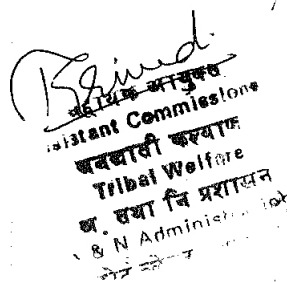 सहायक आयुक्त
Assistant Commissione
जनजाती कल्याण
Tribal Welfare
अ. तथा नि प्रशासन
& N Administ